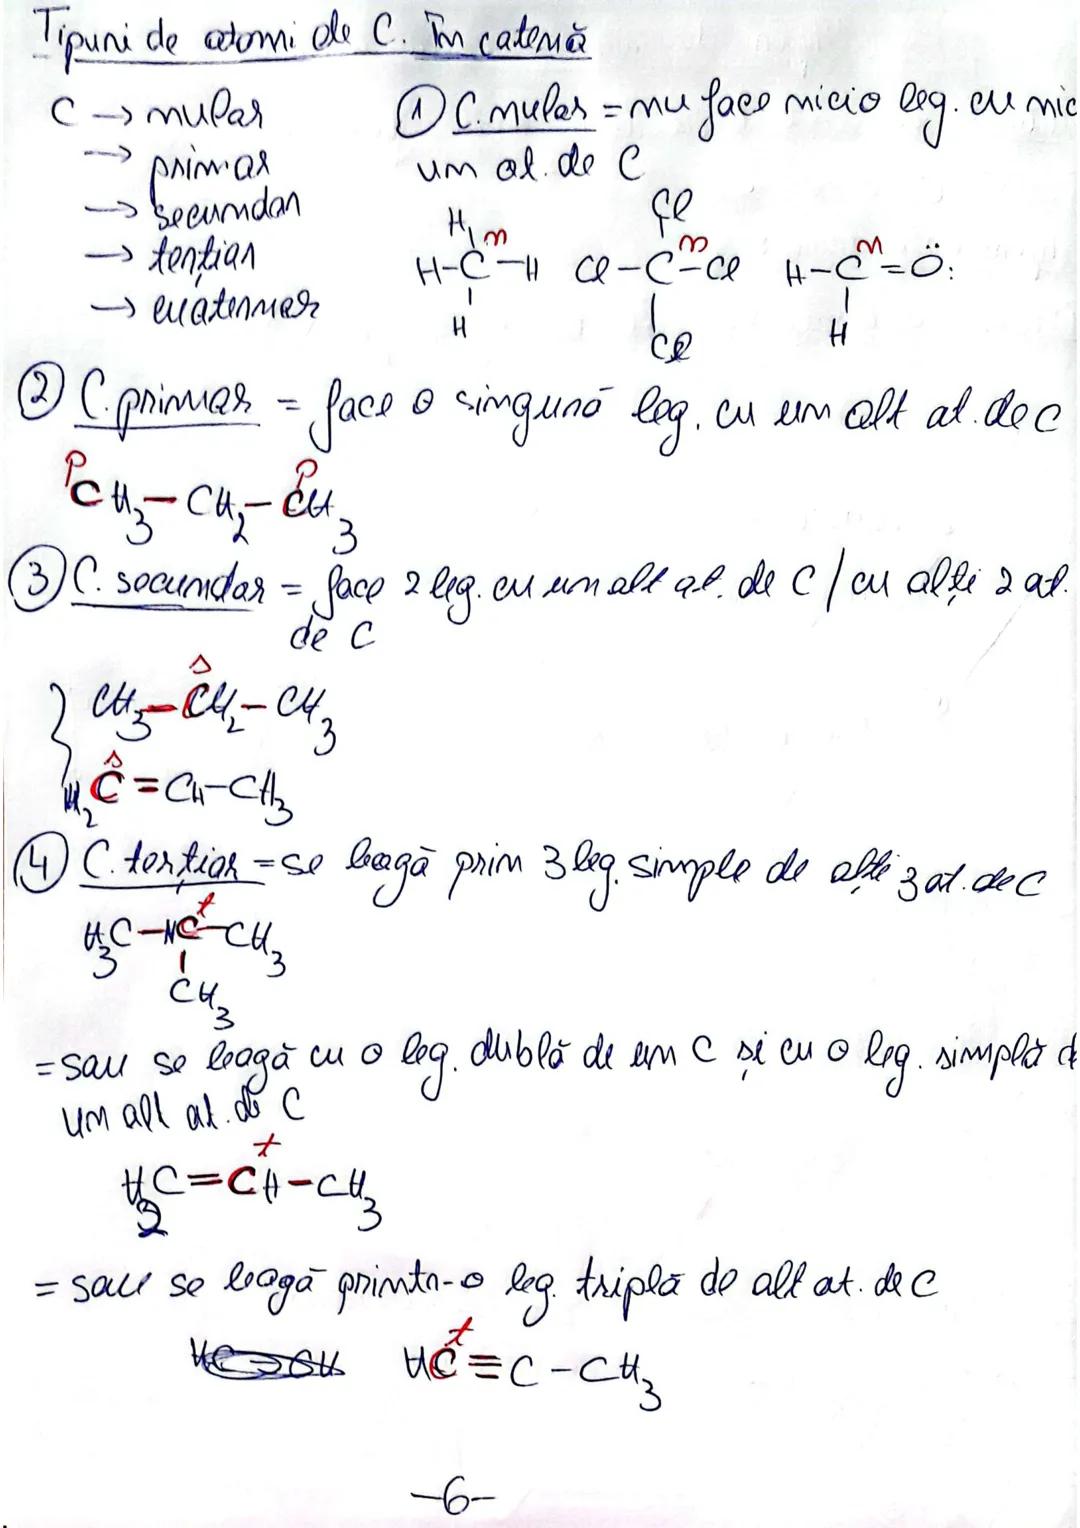 Tipuri de atomi de C. în catenă
C → nular
→ primar
→ secundar
→ terțiar
→ cuaternar
① C. nular = nu face nicio leg. cu nic
un at. de C
H Cl
H-C-H n Cl-C-Cl n H-C=Ö: n
H Cl H
② C. primar = face o singură leg. cu un alt at. de C
p p
CH3-CH2-CH3
③ C. secundar = face 2 leg. cu un alt at. de C / cu alți 2 at.
de C
s
CH3-CH2-CH3
s
H2C=CH-CH3
④ C. terțiar = se leagă prin 3 leg. simple de alți 3 at. de C
t
H3C-HC-CH3
CH3
= sau se leagă cu o leg. dublă de un C și cu o leg. simplă d
un alt at. de C
t
H2C=CH-CH3
= sau se leagă printr-o leg. triplă de alt at. de C
t
HC≡C-CH3
-6-